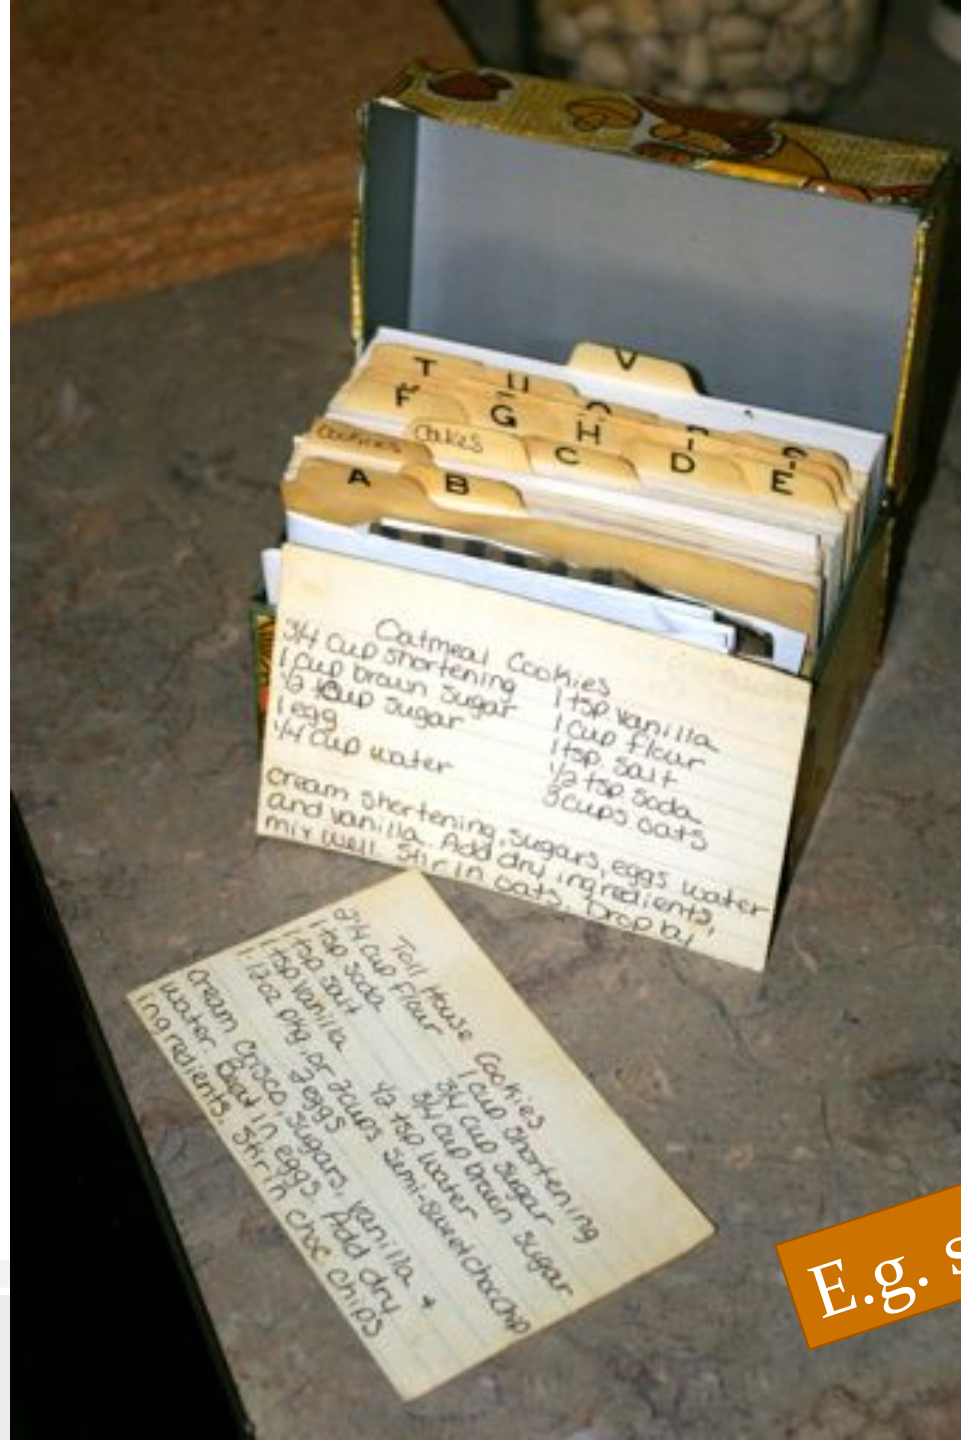 V
T U
F G H I
Cookies Cakes C D E
A B
Oatmeal Cookies
3/4 cup shortening
1 cup brown sugar
1/2 cup sugar
1 egg
1/4 cup water
1 tsp vanilla
1 cup flour
1 tsp. salt
1/2 tsp soda
3 cups oats
Cream shortening, sugars, eggs water
and vanilla. Add dry ingredients,
mix well. Stir in oats. Drop by
Toll House Cookies
2 1/4 cup flour
1 tsp soda
1 tsp. salt
1 tsp vanilla
1 12oz pkg. or 2 cups semi-sweet choc chip
2 eggs
1 cup shortening
3/4 cup sugar
3/4 cup brown sugar
1/2 tsp water
Cream Crisco, sugars, vanilla +
water. Beat in eggs. Add dry
ingredients. Stir in choc chips
E.g. s